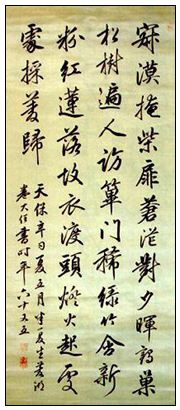 寂漠掩柴扉蒼茫對夕暉鶴巢
松樹遍人訪蓽門稀綠竹含新
粉紅蓮落故衣渡頭燈火起處
處採菱歸
天保辛丑夏五月
卷大任書時年六十又五